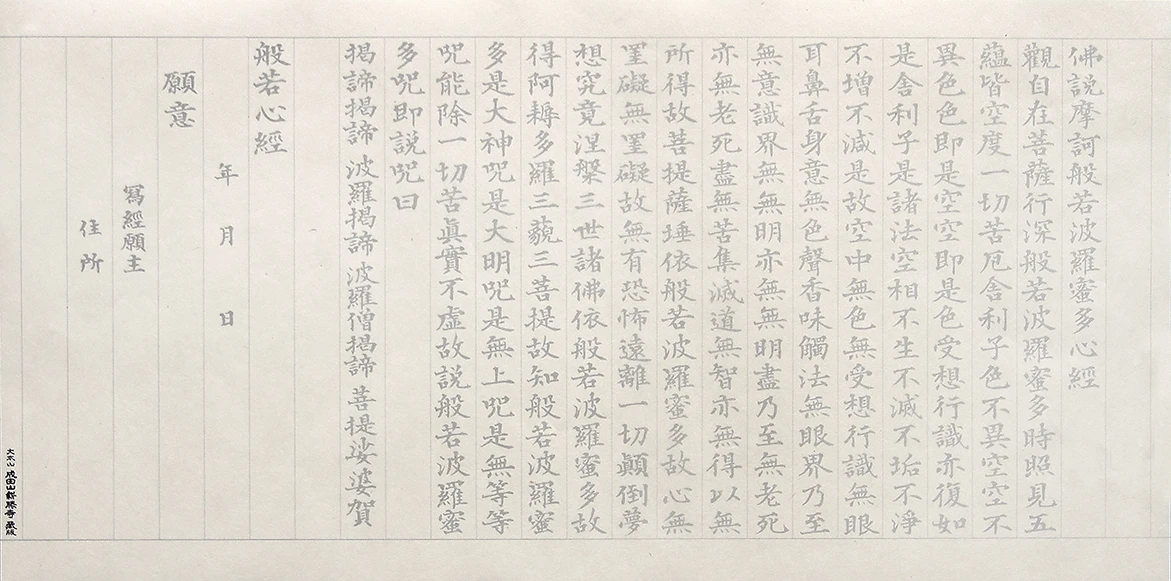 佛説摩訶般若波羅蜜多心經
觀自在菩薩行深般若波羅蜜多時照見五
蘊皆空度一切苦厄舍利子色不異空空不
異色色即是空空即是色受想行識亦復如
是舍利子是諸法空相不生不滅不垢不淨
不增不減是故空中無色無受想行識無眼
耳鼻舌身意無色聲香味觸法無眼界乃至
無意識界無無明亦無無明盡乃至無老死
亦無老死盡無苦集滅道無智亦無得以無
所得故菩提薩埵依般若波羅蜜多故心無
罣礙無罣礙故無有恐怖遠離一切顚倒夢
想究竟涅槃三世諸佛依般若波羅蜜多故
得阿耨多羅三藐三菩提故知般若波羅蜜
多是大神咒是大明咒是無上咒是無等等
咒能除一切苦眞實不虛故説般若波羅蜜
多咒即説咒曰
揭諦揭諦 波羅揭諦 波羅僧揭諦 菩提娑婆賀
般若心經
年 月 日
願意
寫經願主
住所
大本山 成田山新勝寺 蔵版